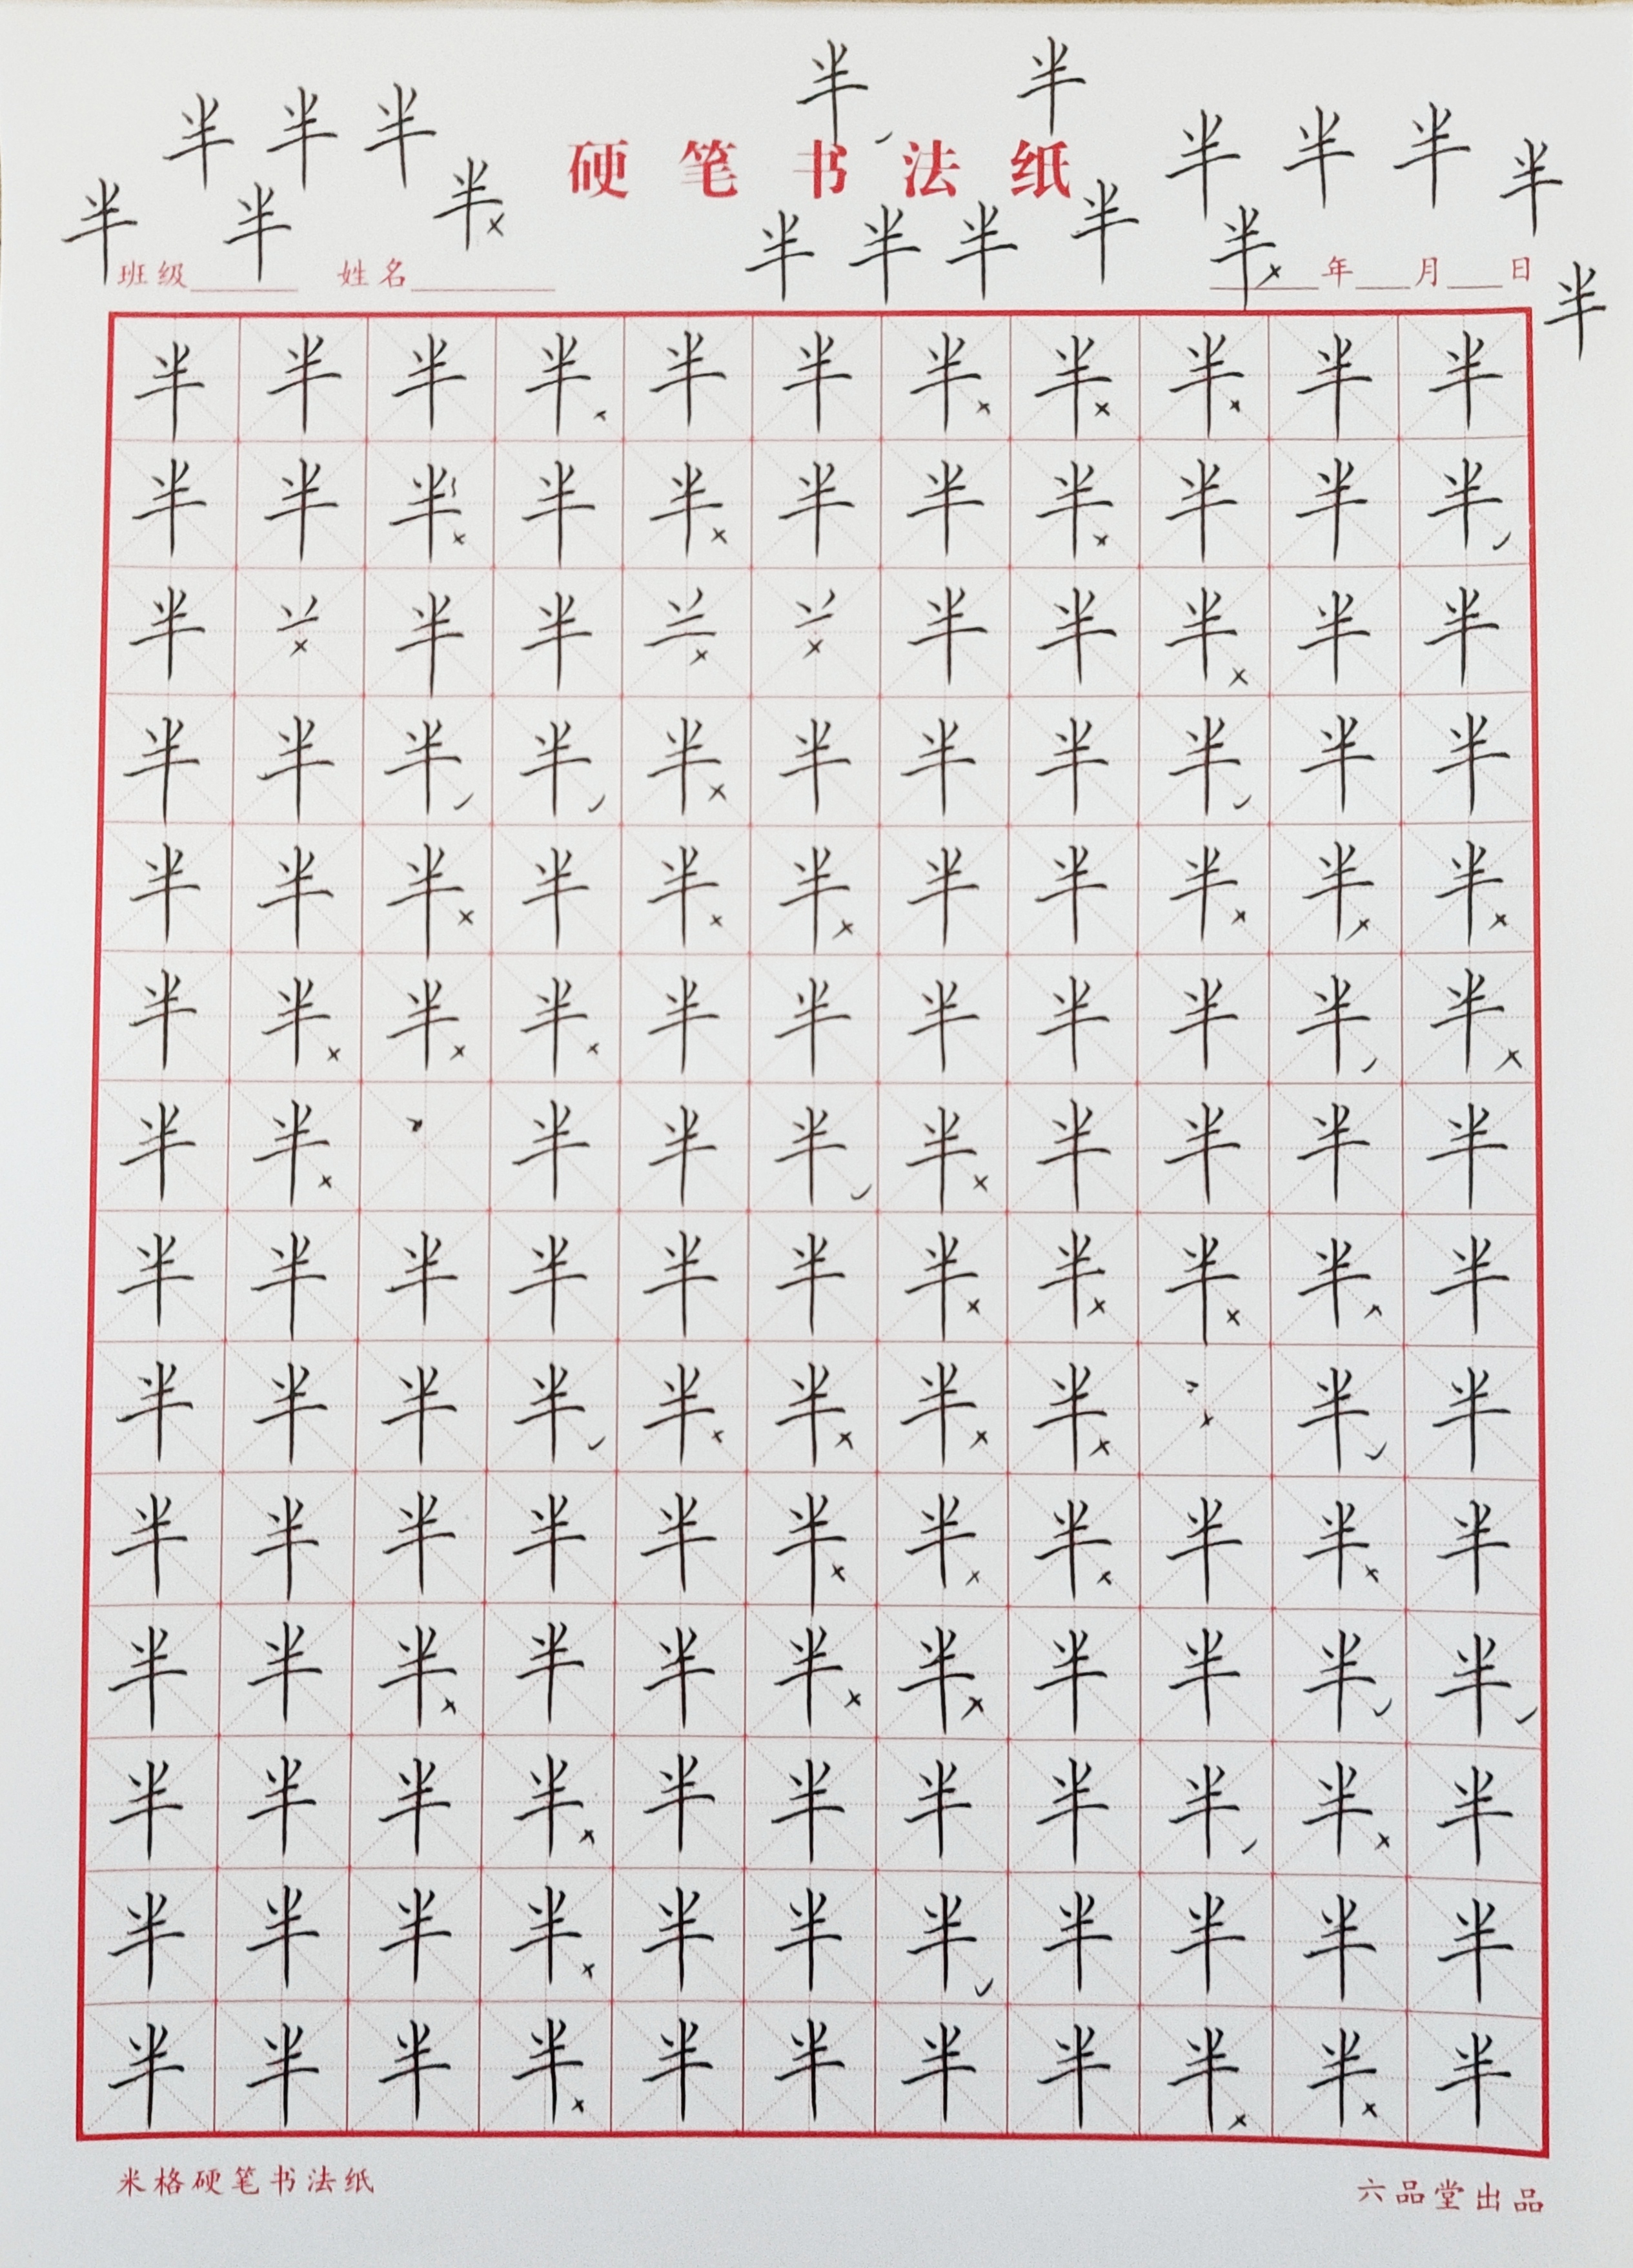 半 半
半 半 半 半 半 半
硬笔书法纸
半 半 半 半
半 半 半 半 半 半
班级 姓名 年 月 日
半
半 半 半 半 半 半 半 半 半 半 半
半 半 半 半 半 半 半 半 半 半 半
半 半 半 半 半 半 半 半
半 半 半 半 半 半 半 半 半 半 半
半 半 半 半 半 半 半 半 半 半 半
半 半 半 半 半 半 半 半 半 半 半
半 半 半 半 半 半 半 半 半 半
半 半 半 半 半 半 半 半 半 半 半
半 半 半 半 半 半 半 半 半 半
半 半 半 半 半 半 半 半 半 半 半
半 半 半 半 半 半 半 半 半 半 半
半 半 半 半 半 半 半 半 半 半 半
半 半 半 半 半 半 半 半 半 半 半
半 半 半 半 半 半 半 半 半 半 半
米格硬笔书法纸 六品堂出品